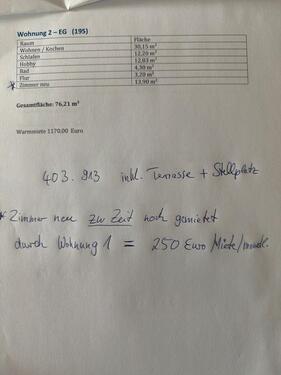 Wohnung 2 – EG (195)
Raum Fläche
Wohnen / Kochen 30,15 m²
Schlafen 12,20 m²
Hobby 12,03 m²
Bad 4,30 m²
Flur 3,20 m²
* Zimmer neu 13,90 m²
Gesamtfläche: 76,21 m²
Warmmiete 1170,00 Euro
403.913 inkl. Terrasse + Stellplatz
* Zimmer neu zur Zeit noch gemietet
durch Wohnung 1 = 250 Euro Miete/monatl.